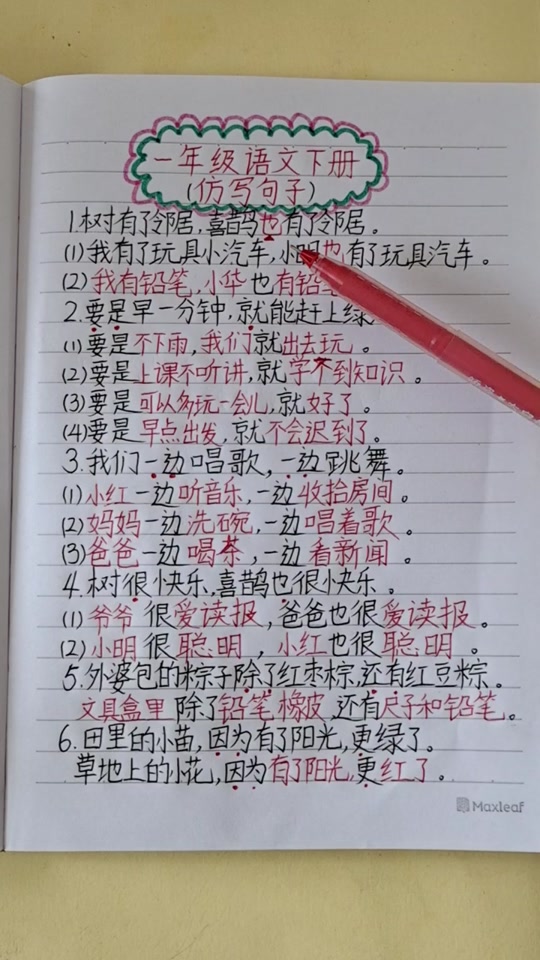 一年级语文下册
(仿写句子)
1.树有了邻居,喜鹊也有了邻居。
(1)我有了玩具小汽车,小明也有了玩具汽车。
(2)我有铅笔,小华也有铅
2.要是早一分钟,就能赶上绿
(1)要是不下雨,我们就出去玩。
(2)要是上课不听讲,就学不到知识。
(3)要是可以多玩一会儿,就好了。
(4)要是早点出发,就不会迟到了。
3.我们一边唱歌,一边跳舞。
(1)小红一边听音乐,一边收拾房间。
(2)妈妈一边洗碗,一边唱着歌。
(3)爸爸一边喝茶,一边看新闻。
4.树很快乐,喜鹊也很快乐。
(1)爷爷很爱读报,爸爸也很爱读报。
(2)小明很聪明,小红也很聪明。
5.外婆包的粽子除了红枣粽,还有红豆粽。
文具盒里除了铅笔橡皮,还有尺子和铅笔。
6.田里的小苗,因为有了阳光,更绿了。
草地上的小花,因为有了阳光,更红了。
Maxleaf